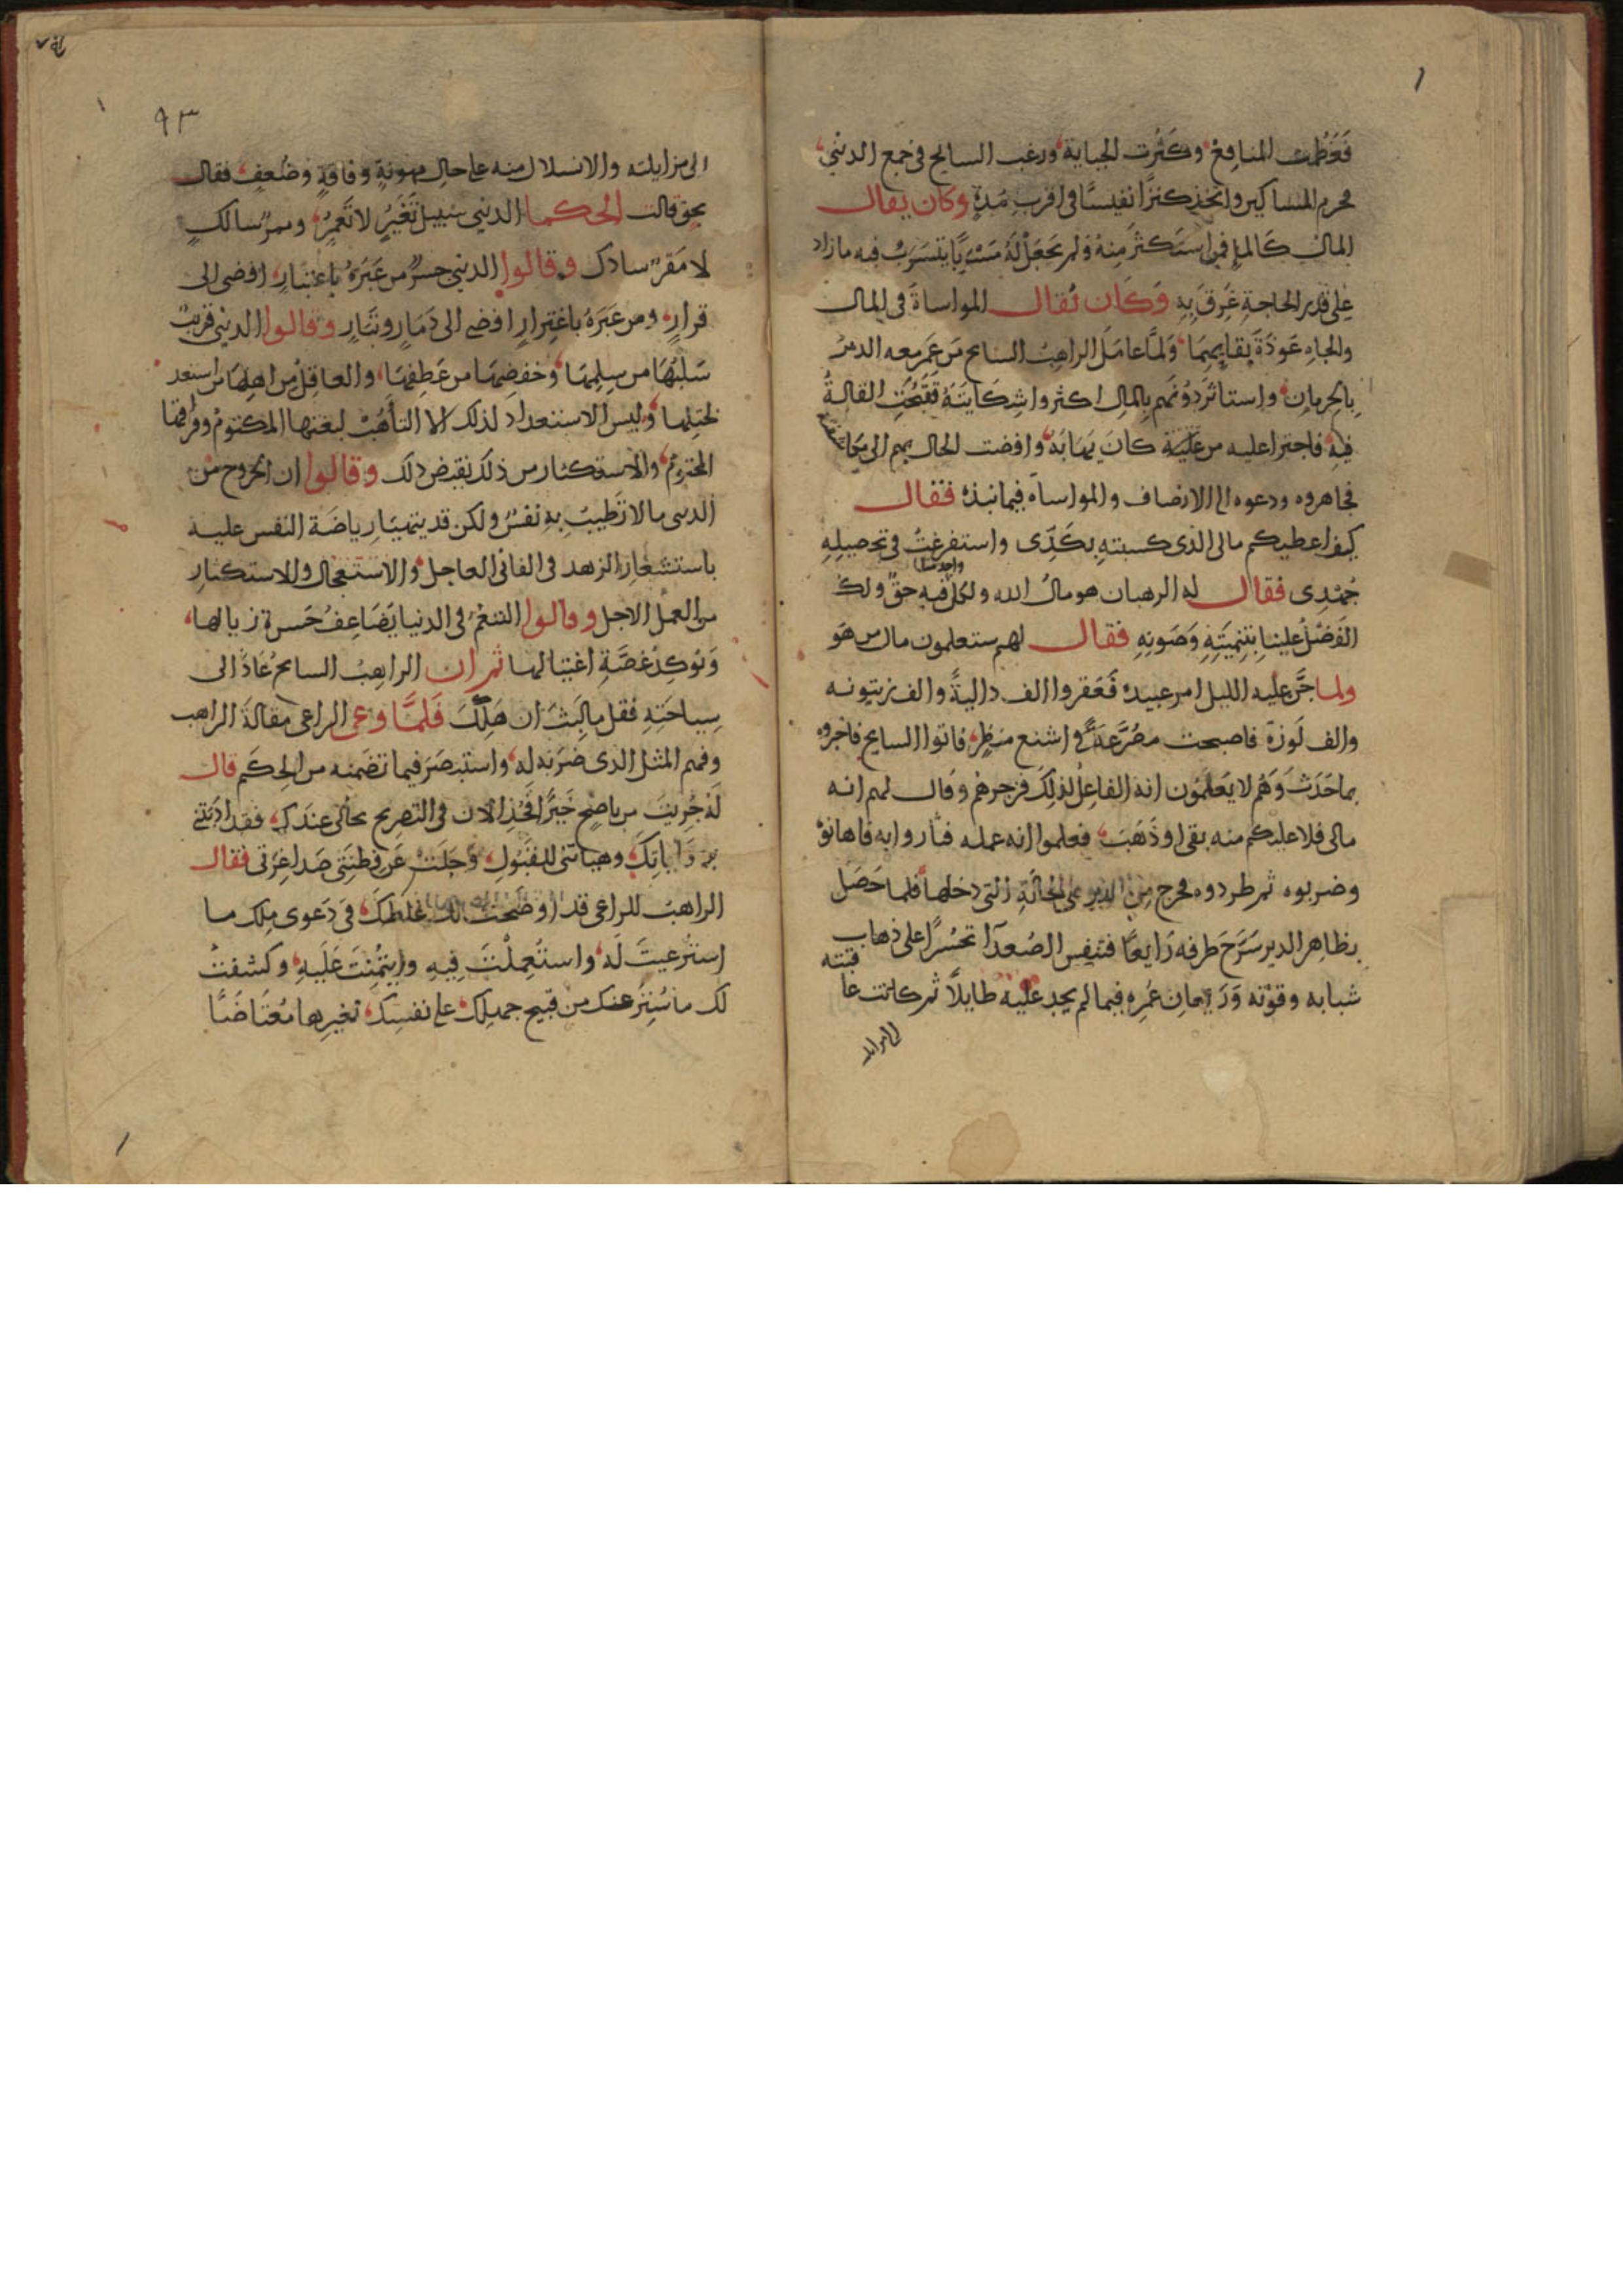 فَعَظُمت المنافِعُ وكثُرت الجباية ورغب السايح في جمع الدنيى
فحرم المساكين واتخذ كنزًا نفيسًا في اقربِ مُدةٍ وكان يقال
المالُ كالماءِ فمن استكثرَ مِنهُ ولم يجعَلْ لهُ مَسْرَبًا يتسرَّبُ فيه مازاد
على قدر الحاجةِ غَرِقَ بِهِ وَكَان يُقال المواساةَ في المال
والجاه عَوذَةُ بقايهما ولمَّا عامَلَ الراهبُ السايح مَن عَمر معه الديرَ
بالحرمان واستاثَر دُونَهم بالمال اكثروا شِكايتَهُ فقبُحت القالةُ
فيهِ فاجترا عليه من كانَ يهَابَهُ وافضت الحال بهم الى
فجاهروه ودعوه الى الانصاف والمواساه فيما نبذه فقال
كيف اعطيكم مالى الذى كسبته بكَدِّى واستفرغتُ في تحصيلِهِ
جُهْدِى فقال له الرهبان هو مالُ الله ولكل واحد منا فيه حقٌ ولك
الفَضْلُ علينا بتنميَتِهِ وَصَونِهِ فقال لهم ستعلمون مال من هَو
ولما جَنَّ عليه الليل امر عبيده فَعَقروا الف داليةً والف زيتونه
والف لَوزة فاصبحت مصُرَّعَةً في اشنع منظرٍ فاتوا السايح فاخبروه
بماحَدَثَ وَهُم لا يَعلمُون انه الفاعلُ لذلِكَ فزجرهُم وقال لهم انه
مالى فلا عليكم منه بقى او ذَهَبَ فعلموا انه عمله فثاروا به فاهانوهُ
وضربوه ثم طردوه فخرج مِن الدير على الحالَةِ التى دخلها فلما حَصَل
بظاهر الدير سَرَّحَ طرفه رَايعًا فتنفس الصُعدآ تحسُرًا على ذهاب قنيته
شبابه وقوّته وَرَيعانِ عُمرِه فيما لم يجد عليه طايلًا ثم كانت عا
الى مزايلته
٩٣
الى مزايلته والانسلال منه على حالِ مهونةٍ وفاقةٍ وضُعفٍ فقال
بحقٍ قالت الحكما الدنيى سَبيل تَعْبُرُ لا تَعْمُرُ وممرّ سالكٍ
لا مَقرّ سادك وقالوا الدنيى جسرٌ من عَبَرَهُ باعتبارٍ افضى الى
قرارٍ ومن عَبَرهُ باغترارٍ افضى الى دَمَارٍ وتَبَارٍ وقالوا الدنيى قريبٌ
سَلبُهَا من سِلمِهَا وخفضِهَا من عَطِفهَا والعاقِلُ مِن اهلِهَا من استعد
لختلها وليس الاستعداد لذلك الا التأهُبْ لبغتها المكتوم وفراقها
المحتوم والاستكثار من ذلك نقيض ذلك وقالوا ان الخروج مْن
الدنيى مالا تَطيبُ بهِ نفسٌ ولكن قد يتهيَّا رياضَة النفس عليه
باستشعَار الزهد في الفانى العاجل والاستعجال والاستكثار
من العمل الاجل وقالوا التنعُم في الدنيا يضَاعِفُ حَسرة زيالها
وَيُوكِدُ غصَّةِ اغتيالها ثم ان الراهِبْ السايحُ عَادَ الى
سِياحَتِهِ فقل ما لَبِثَ ان هَلَكَ فَلمَّا وعى الراعى مقالةَ الراهب
وفهم المثل الذى ضرَبه له واستبصَر فيما تضمنه من الحِكَم قال
لَهُ جُزيتَ من ناصحٍ خَيرًا فَخُذ الان في التصريح بحالى عندك فقد ادبتنى
وهياتنى للقبُولِ وَجَلَتْ عَن فِطنَتى صَدا غِرّتى فقال
الراهب للراعى قد اوضَحت لك غلطكَ في دَعوى مِلك ما
استُرعيتَ لَه واستُعمِلْتَ فِيهِ وايتُمِنْتَ عَلَيهِ وكشفتُ
لك ماسُتِرَ عنك من قبيح جهلك على نفسِك